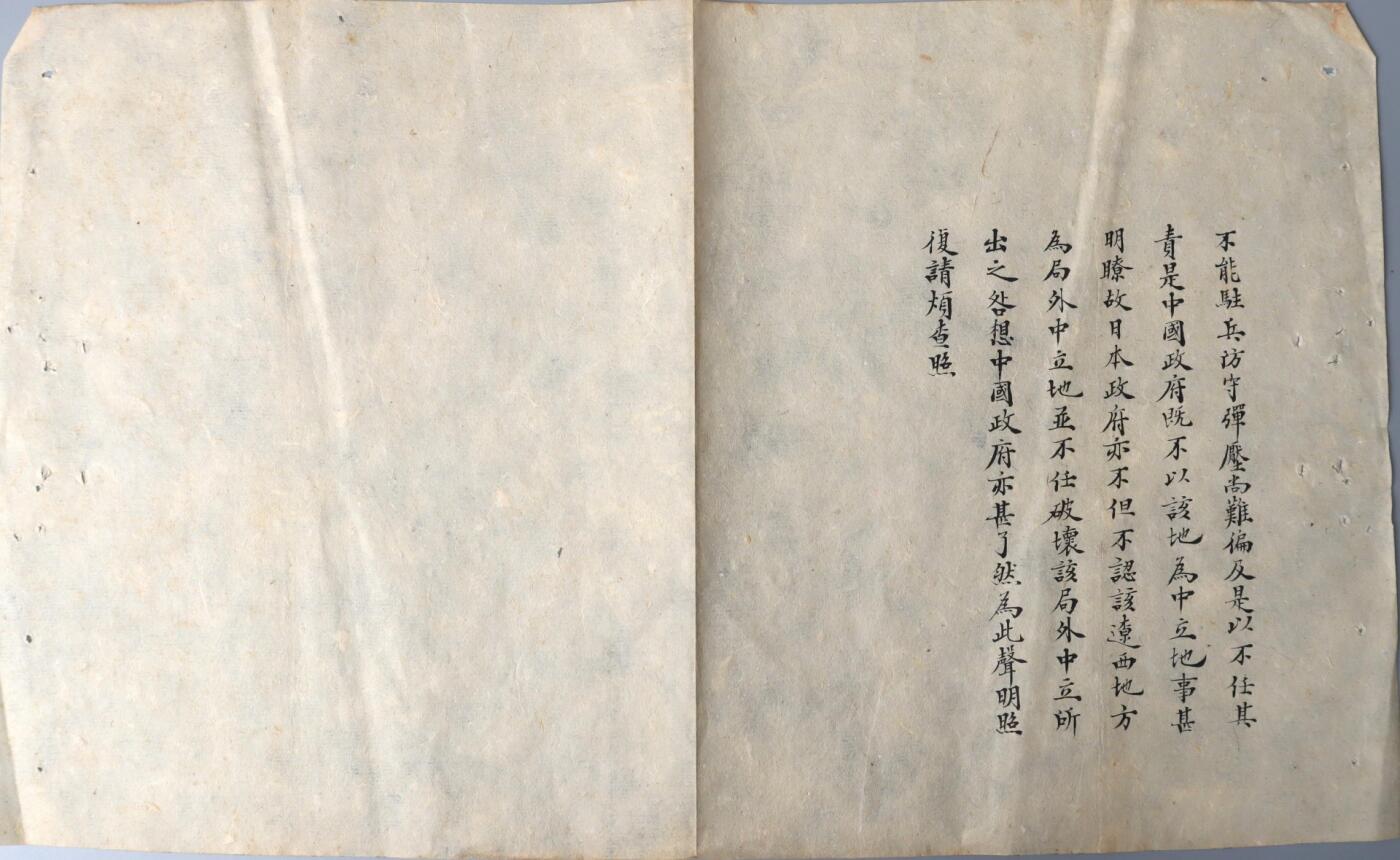 不能駐兵防守彈壓尚難徧及是以不任其
責是中國政府既不以該地為中立地事甚
明瞭故日本政府亦不但不認該遼西地方
為局外中立地並不任破壞該局外中立所
出之咎想中國政府亦甚了然為此聲明照
復請煩查照